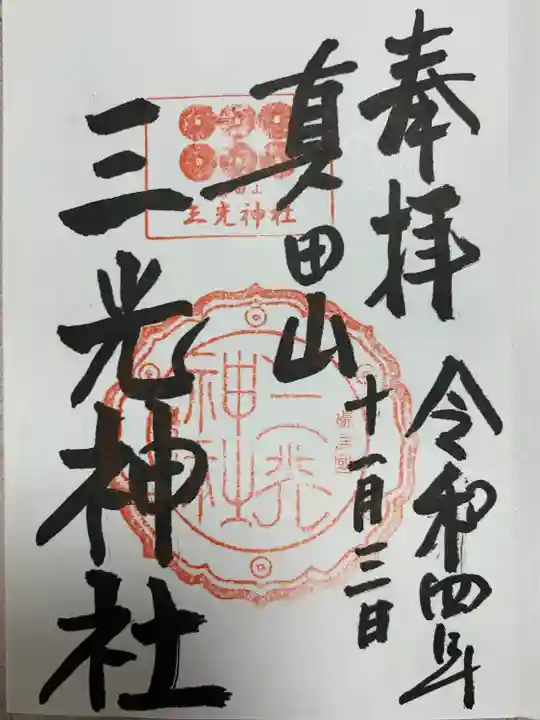 奉拝
令和四年
真田山
十一月三日
三光神社
真田山
三光神社
三光神社